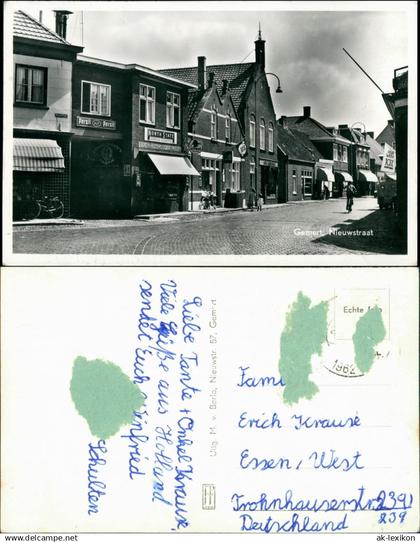 Persil
Persil
NORTH STATE
Gemert, Nieuwstraat
Liebe Tante + Onkel Krause,
Viele Grüße aus Holland
sendet Euch Winfried
Schulten
Uitg. M. v. Berlo, Nieuwstr. 57, Gemert
Echte Foto
1962
Fami
Erich Krause
Essen, West
Frohnhauserstr. 239
239
Deutschland
www.ansichtskarten-lexikon.de
ak-lexikon